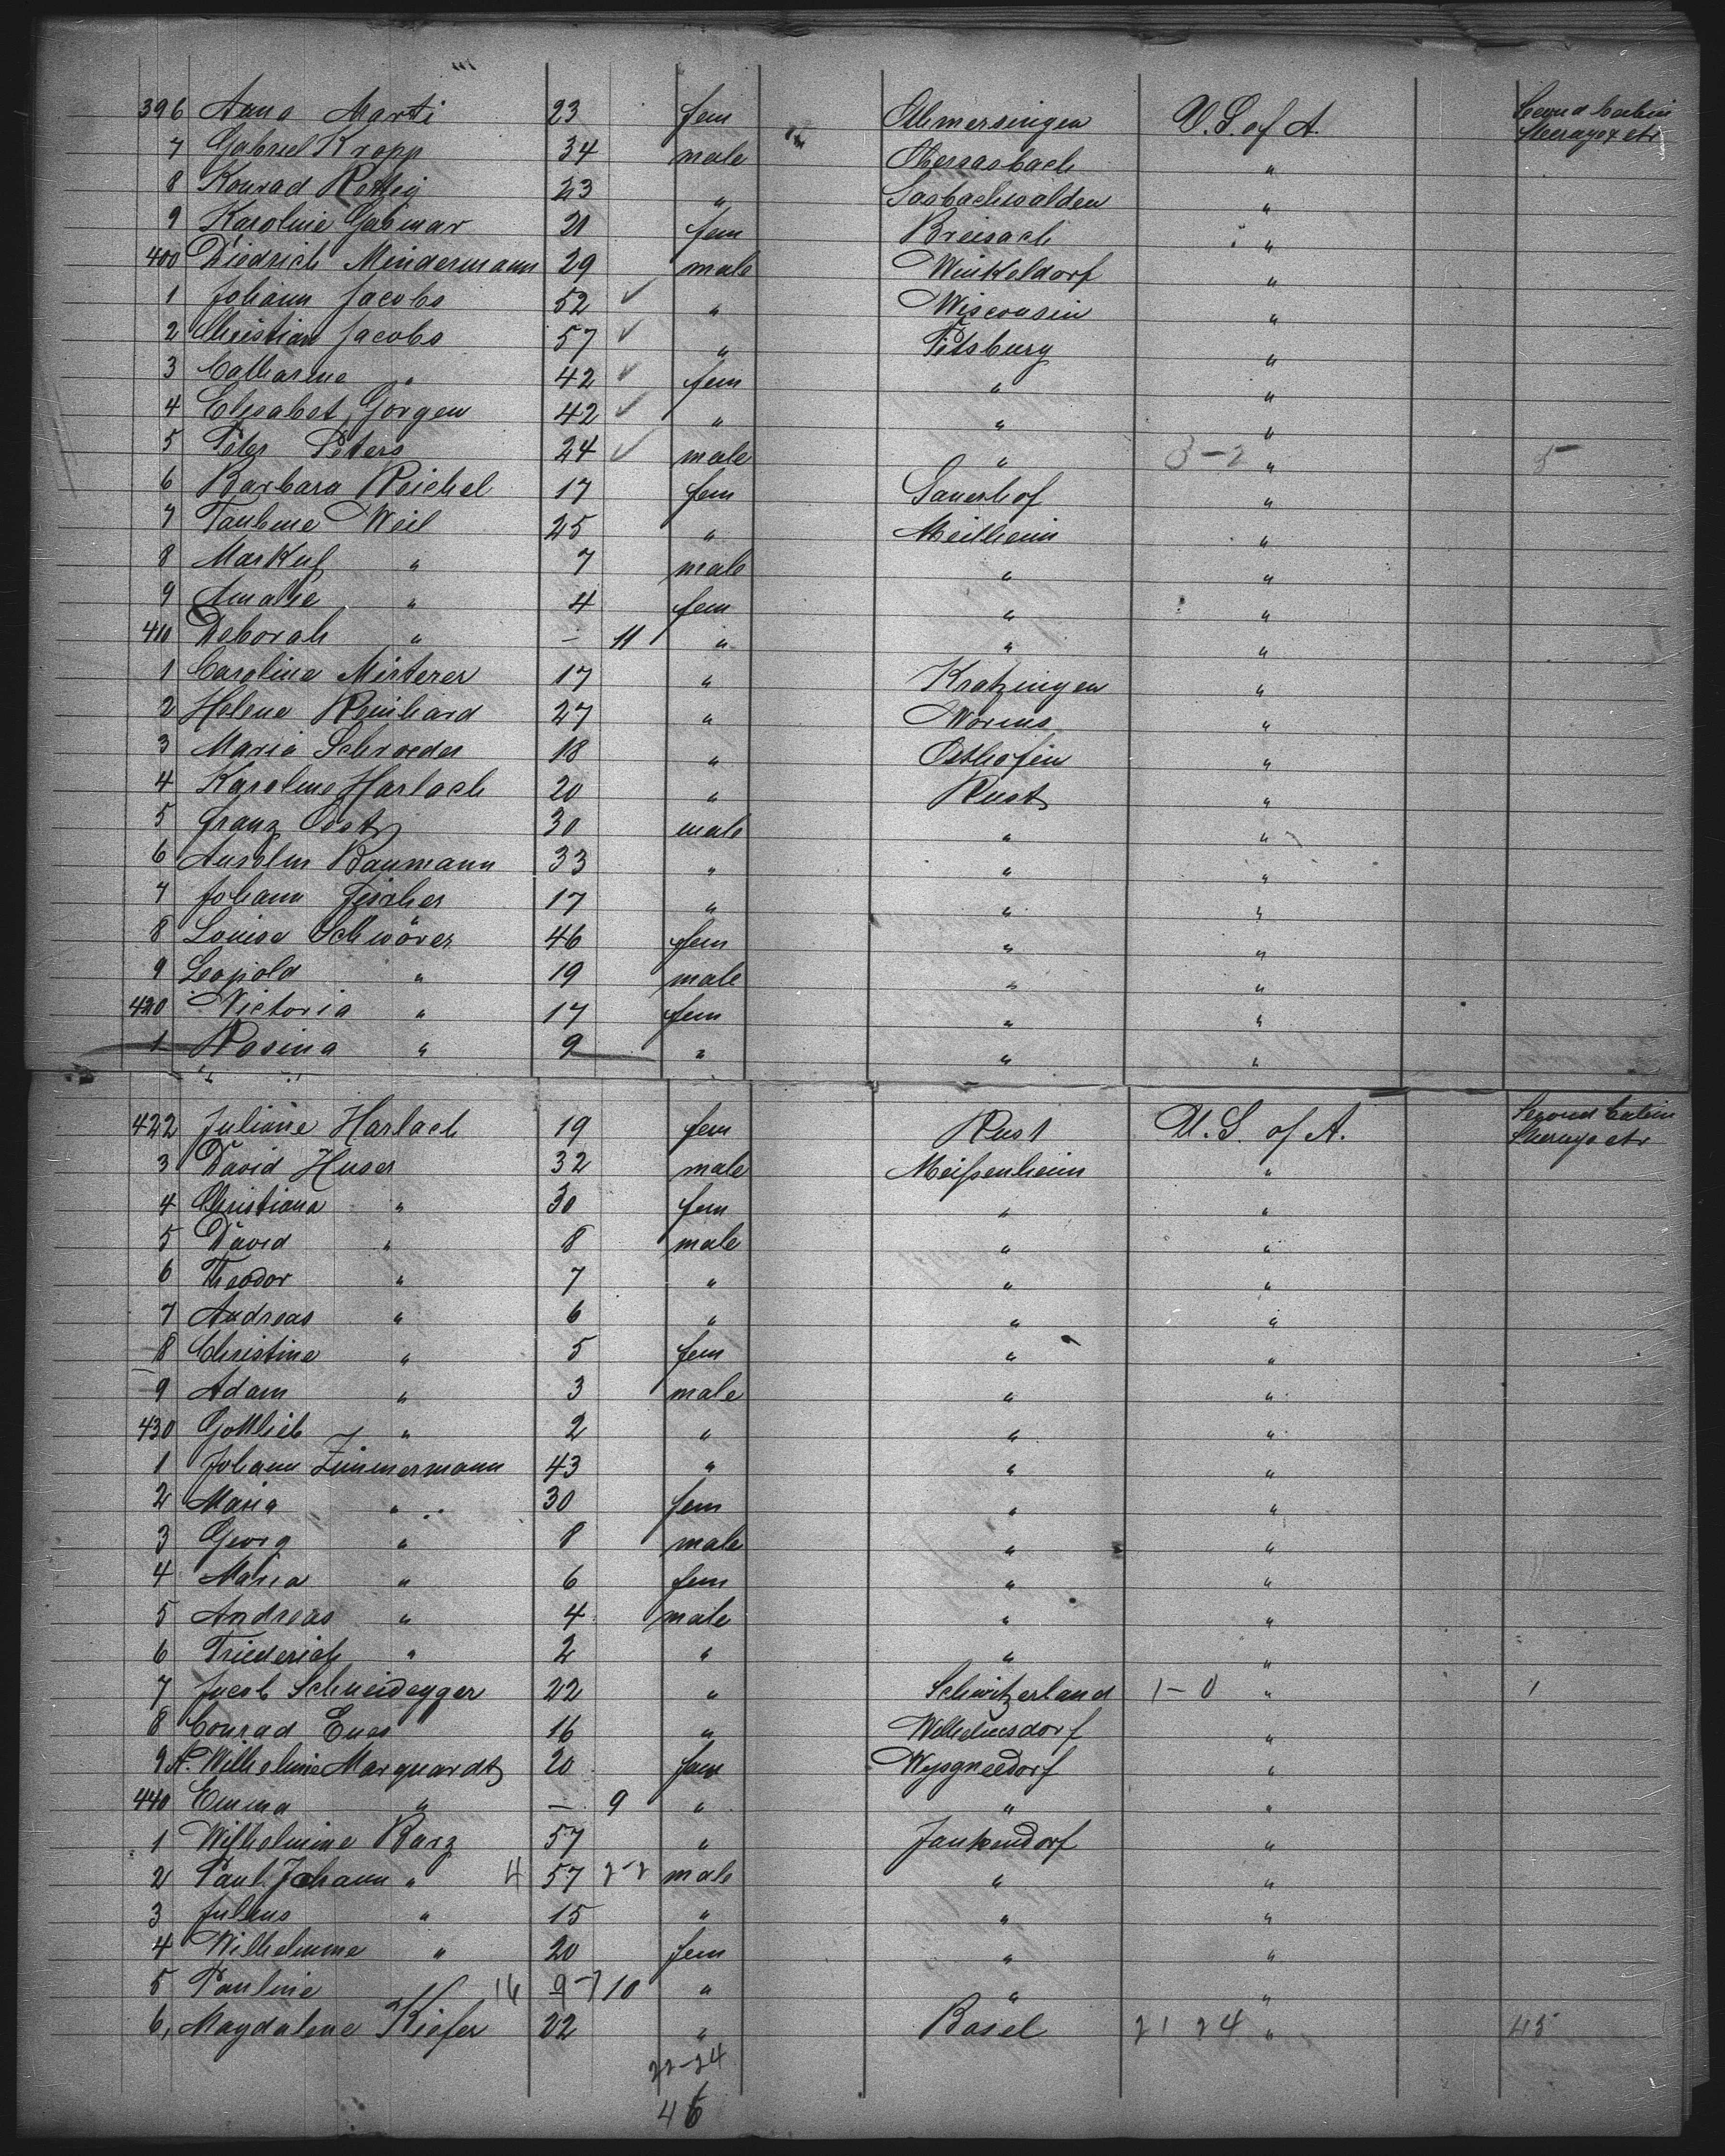 396 Anna Marti 23 fem Ollmersingen U. S. of A. Second Cabin
Steerage etc
7 Gabriel Kropp 34 male Obersasbach "
8 Konrad Rettig 23 " Sasbachwalden "
9 Karoline Gabmar 21 fem Breisach "
400 Diedrich Mindermann 29 male Winkeldorf "
1 Johann Jacobs 52 ✓ " Wisconsin "
2 Christian Jacobs 57 ✓ " Pitsburg "
3 Catharine " 42 ✓ fem " "
4 Elisabet Gorgen 42 ✓ " " "
5 Peter Peters 24 ✓ male " 3-2 " 5
6 Barbara Reichel 17 fem Sauerhof "
7 Taubene Weil 25 " Meilheim "
8 Markuf " 7 male " "
9 Amalie " 4 fem " "
410 Deborah " - 11 " " "
1 Carolina Misterer 17 " Kratzingen "
2 Helene Reinhard 27 " Worms "
3 Maria Schroeder 18 " Osthofen "
4 Karoline Harlach 20 " Rust "
5 Franz Ost 30 male " "
6 Anselm Baumann 33 " " "
7 Johann Fischer 17 " " "
8 Louise Schwörer 46 fem " "
9 Leopold " 19 male " "
420 Victoria " 17 fem " "
1 Rosina " 9 " " "
422 Juliane Harlach 19 fem Rust U. S. of A. Second Cabin
Steerage etc
3 David Huser 32 male Meißenheim "
4 Christiana " 30 fem " "
5 David " 8 male " "
6 Theodor " 7 " " "
7 Andreas " 6 " " "
8 Christine " 5 fem " "
9 Adam " 3 male " "
430 Gottlieb " 2 " " "
1 Johann Zimmermann 43 " " "
2 Maria " 30 fem " "
3 Georg " 8 male " "
4 Maria " 6 fem " "
5 Andreas " 4 male " "
6 Friederich " 2 " " "
7 Jacob Schneidegger 22 " Schwitzerland 1-0 " 1
8 Conrad Enes 16 " Wilhelmsdorf "
9 A. Wilhelmine Marquardt 20 fem "
440 Emma " - 9 " " "
1 Wilhelmine Barz 57 " Jankendorf "
2 Paul Johann " 4 57 2-2 male " "
3 Julius " 15 " " "
4 Wilhelmine " 20 fem " "
5 Pauline " 16 9 10 " " "
6, Magdalene Kiefer 22 " Basel 21 24 " 45
22-24
46